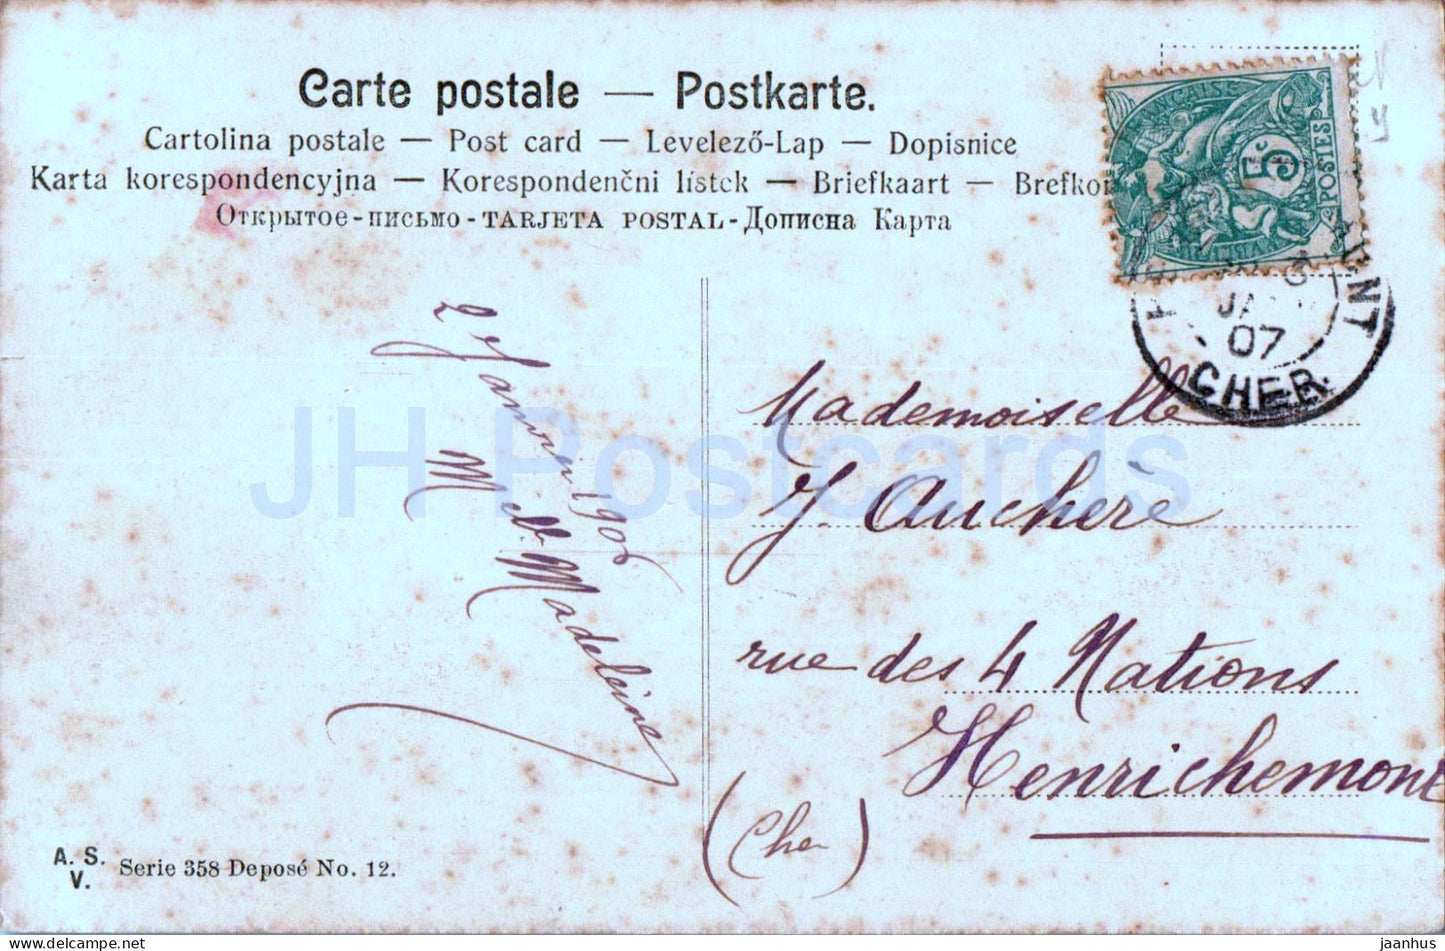 Carte postale — Postkarte.
Cartolina postale — Post card — Levelező-Lap — Dopisnice
Karta korespondencyjna — Korespondenčni lístek — Briefkaart — Brefkor
Открытое-письмо - TARJETA POSTAL - Дописна Карта
ÇAISE
5c
POSTES
JA
07
CHER
2 Janvier 1906
Mlle Madeleine
Mademoiselle
Y. Auchère
rue des 4 Nations
Henrichemont
(Cher)
A. S.
V.
Serie 358 Deposé No. 12.
JH Postcards
hippostcard.com
jaanhus